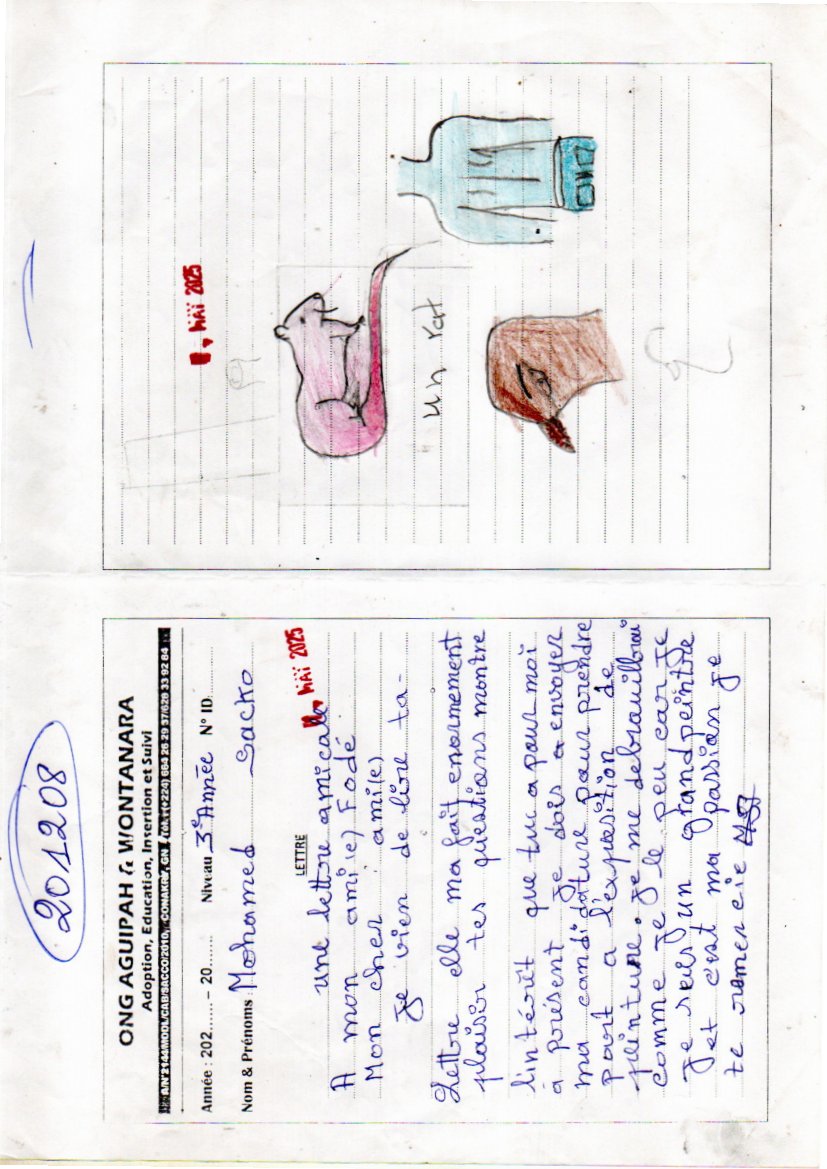 201208
ONG AGUIPAH & WONTANARA
Adoption, Education, Insertion et Suivi
Année : 202...... - 20....... Niveau 3e Année N° ID
Nom & Prénoms : Mohamed Sacko
LETTRE
MAÏ 2025
une lettre amicale
A mon ami(e) Fodé
Mon cher ami(e)
Je vien de lire ta-
Lettre elle ma fait enormement
plaisir tes questions montre
l'intérêt que tu a pour moi
à présent Je dois a envoyer
ma candidature pour prendre
part a l'exposition de
peinture. Je me debrouillbrai
comme Je le peu car Je
Je suis un grand peintre
et c'est ma passion Je
te remercie
MAÏ 2025
un rat